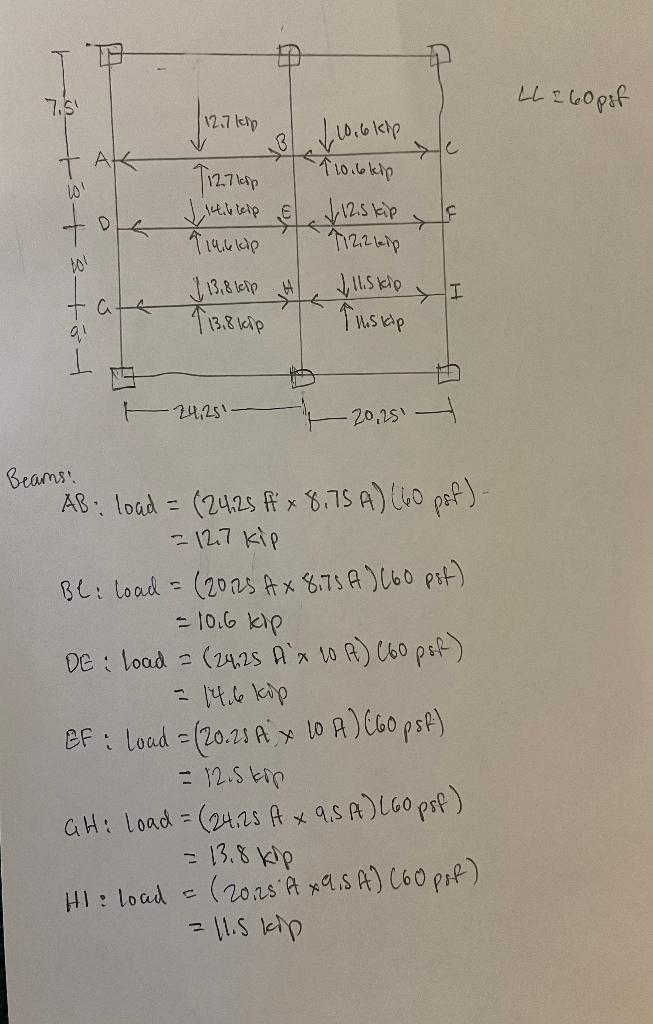 LL = 60psf
7.5'
12.7 kip
10.6 kip
A
B
C
12.7 kip
10.6 kip
10'
14.6 kip
12.5 kip
D
E
F
14.6 kip
12.2 kip
10'
13.8 kip
11.5 kip
G
H
I
13.8 kip
11.5 kip
9'
24.25'
20.25'
Beams:
AB: load = (24.25 ft x 8.75 ft)(60 psf)
= 12.7 kip
BC: load = (20.25 ft x 8.75 ft)(60 psf)
= 10.6 kip
DE: load = (24.25 ft x 10 ft)(60 psf)
= 14.6 kip
EF: load = (20.25 ft x 10 ft)(60 psf)
= 12.5 kip
GH: load = (24.25 ft x 9.5 ft)(60 psf)
= 13.8 kip
HI: load = (20.25 ft x 9.5 ft)(60 psf)
= 11.5 kip